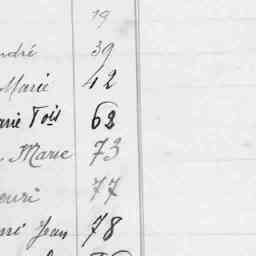 19
ndré 39
Marie 42
arie Tois 62
Marie 73
enri 77
Jean 78